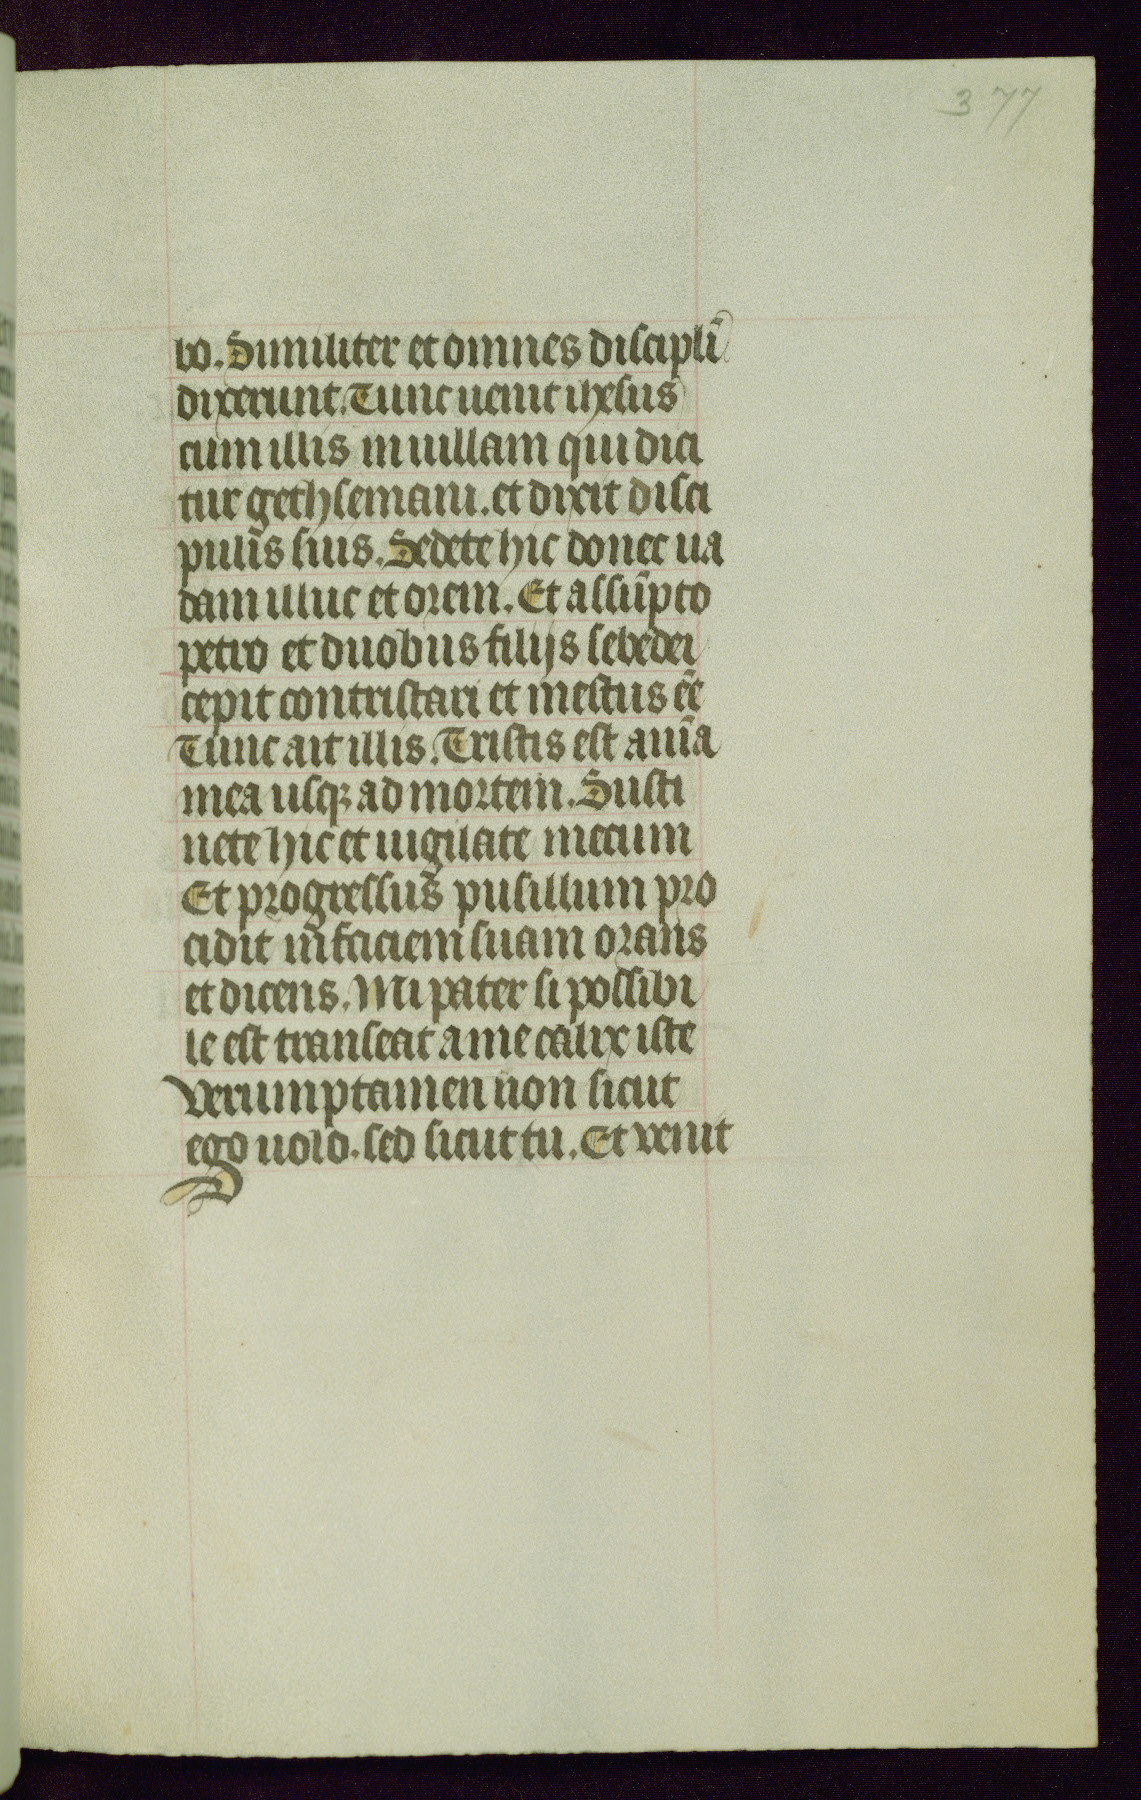 377
bo. Similiter et omnes discipli̅
dixerunt. Tunc uenit ihesus
cum illis in uillam qui dici
tur gethsemani. et dixit disci
pulis suis. Sedete hic donec ua
dam illuc et orem. Et assu̅pto
petro et duobus filijs sebedei
cepit contristari et mestus ee̅
Tunc ait illis. Tristis est ani̅a
mea usqꝫ ad mortem. Susti
nete hic et uigilate mecum
Et progressus pusillum pro
cidit in faciem suam orans
et dicens. Mi pater si possibi
le est transeat a me calix iste
Verumptamen non sicut
ego uolo. sed sicut tu. Et venit